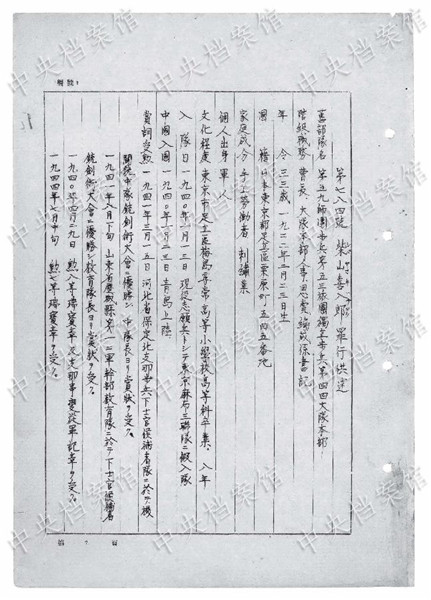 第七八四號 柴山喜八郎 罪行供述
舊部隊名 第五九師團步兵第五三旅團獨立步兵第四四大隊本部
階級職務 曹長、大隊本部人事
年 令 三三歳 一九二二年二月二三日生
國 籍 日本東京都足立區栗原町五四五番地
家庭成分 手工労働者
個人出身 軍人
文化程度 東京市足立區梅島尋常高等小學校高等科卒業、八年
入 隊 日 一九四〇年一月一三日 現役志願兵トシテ東京麻布三聯隊ニ入隊
中國入國 一九四〇年一月二三日 青島上陸
賞詞受勲 一九四一年三月一五日 河北省保定北支那步兵下士官候補者隊ニ於テ機
関銃中隊銃剣術大會ニ優勝シ 中隊長ヨリ賞狀ヲ受ク。
一九四一年八月下旬 山東省 第一二軍幹部教育隊ニ於テ下士官候補者
銃剣術大會ニ優勝シ教育隊長ヨリ賞狀ヲ受ク。
一九四〇年四月二九日 勲八等瑞寶章及支那事變從軍記章ヲ受ク。
一九四四年 月中旬 勲七等瑞寶章ヲ受ク。
中央档案馆